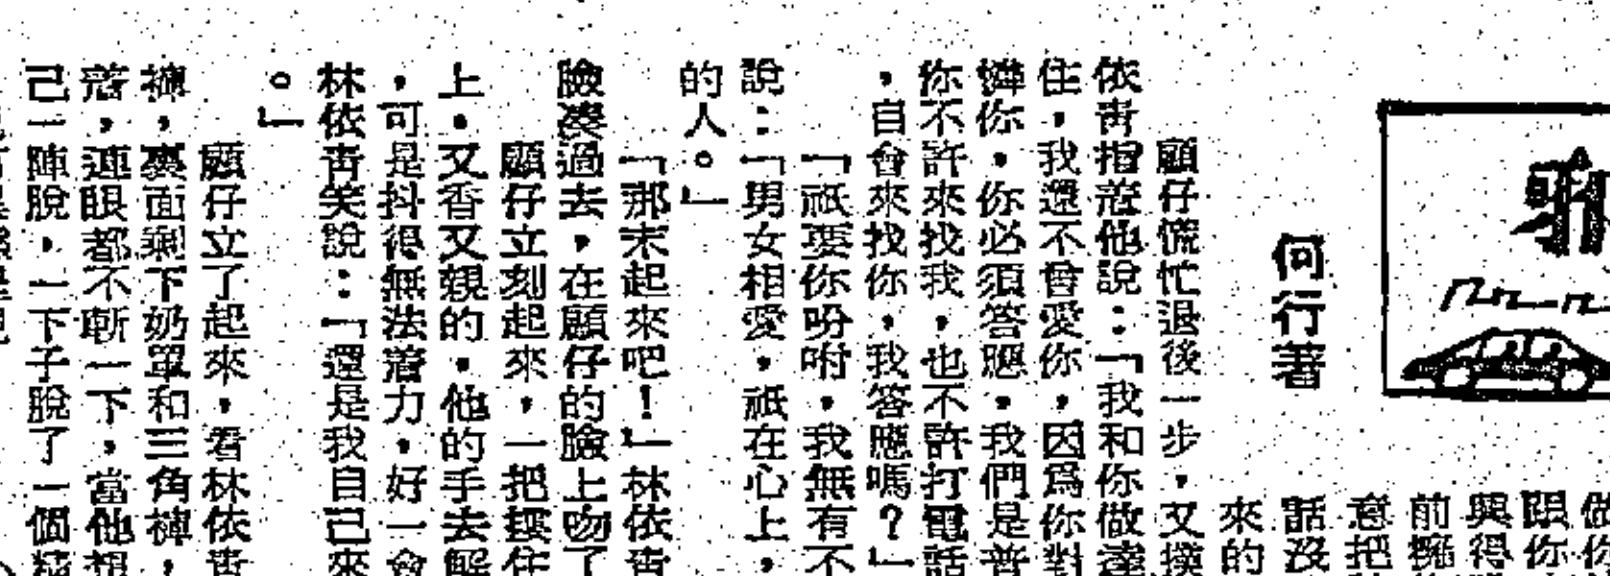 邪
何行著
做你
跟你
與得
前擁
意把
話沒
來的
顧仔慌忙退後一步，又撲
依青指着他說：「我和你做達
住，我還不會愛你，因爲你對
憐你，你必須答應，我們是普
你不許來找我，也不許打電話
，自會來找你，我答應嗎？」
「祇要你吩咐，我無有不
說：「男女相愛，祇在心上，
的人。」
「那末起來吧！」林依青
臉凑過去，在顧仔的臉上吻了
顧仔立刻起來，一把摟住
上，又香又親的，他的手去解
，可是抖得無法着力，好一會
林依青笑說：「還是我自己來
。」
顧仔立了起來，看林依青
褲，裏面剩下奶罩和三角褲，
落，連眼都不斬一下，當他想
己一陣脫，一下子脫了一個精